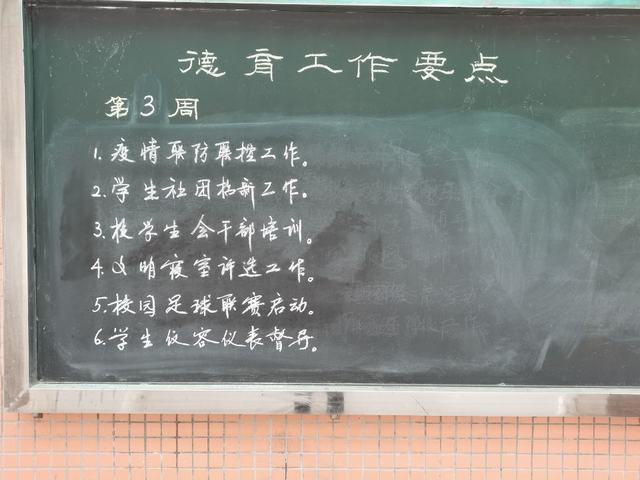 德育工作要点
第3周
1.疫情联防联控工作。
2.学生社团招新工作。
3.校学生会干部培训。
4.文明寝室评选工作。
5.校园足球联赛启动。
6.学生仪容仪表督导。